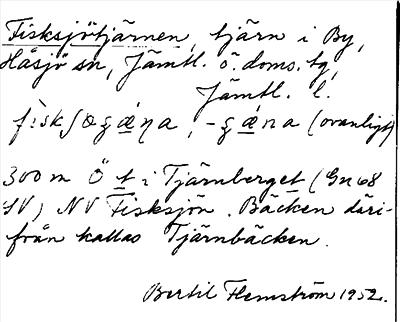 Fisksjötjärnen, tjärn i By,
Håsjö sn, Jämtl. ö. doms. tg,
Jämtl. l.
fìskʃøgæ̀ŋa, -gæ̀na (ovanligt)
300 m Ö t i Tjärnberget (Gn 68
SV) NV Fisksjön. Bäcken däri-
från kallas Tjärnbäcken.
Bertil Flemström 1952.